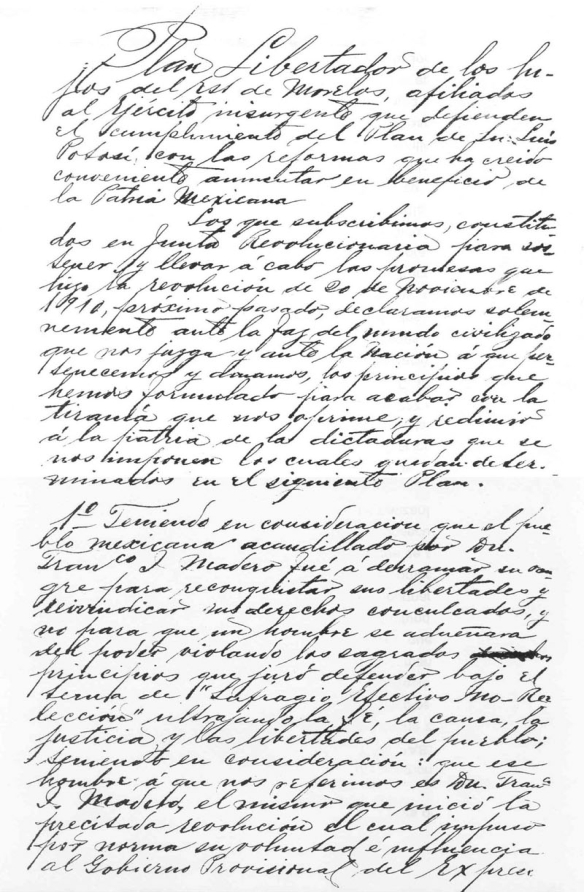 Plan Libertador de los hi-
jos del Est de Morelos, afiliados
al Ejército insurgente que defienden
el cumplimiento del Plan de Sn. Luis
Potosí, con las reformas que ha creido
conveniente aumentar en beneficio de
la Patria Mexicana
Los que subscribimos, constitui-
dos en Junta Revolucionaria para sos-
tener y llevar á cabo las promesas que
hizo la revolución de 20 de Noviembre de
1910, próximo pasado, declaramos solem-
nemente ante la faz del mundo civilizado
que nos juzga y ante la Nación á que per-
tenecemos y amamos, los principios que
hemos formulado para acabar con la
tiranía que nos oprime, y redimir
á la patria de las dictaduras que se
nos imponen las cuales quedan deter-
minados en el siguiente Plan.
1º Teniendo en consideracion que el pue-
blo mexicano acaudillado por Dn.
Franco I. Madero fué á derramar su san-
gre para reconquistar sus libertades y
reivindicar sus derechos conculcados, y
no para que un hombre se adueñara
del poder violando los sagrados
principios que juró defender bajo el
lema de "Sufragio Efectivo No Ree
lección" ultrajando la FE, la causa, la
justicia y las libertades del pueblo;
teniendo en consideración: que ese
hombre á que nos referimos es Dn. Franco
I. Madero, el mismo que inició la
precitada revolución el cual impuso
por norma su voluntad é influencia
al Gobierno Provisional del Ex presi